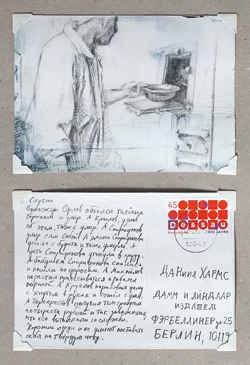 Случаи
Однажды Орлов объелся толчёным
горохом и умер. А Крылов, узнав
об этом, тоже умер. А Спиридонов
умер сам собой. А жена Спиридонова
упала с буфета и тоже умерла. А
дети Спиридонова утонули в пруду.
А бабушка Спиридонова спилась
и пошла по дорогам. А Михайлов
перестал причёсываться и заболел
паршой. А Круглов нарисовал даму
с кнутом в руках и сошёл с ума.
А Перехрестов получил телеграфом
четыреста рублей и так заважничал,
что его вытолкали со службы.
Хорошие люди и не умеют поставить
себя на твердую ногу.
45
DESSAU
12043
Даниил ХАРМС
ДАММ И ЛИНДЛАР
ИЗДАТЕЛИ
ФЭРБЕЛЛИНЕР 25
БЕРЛИН, 10119